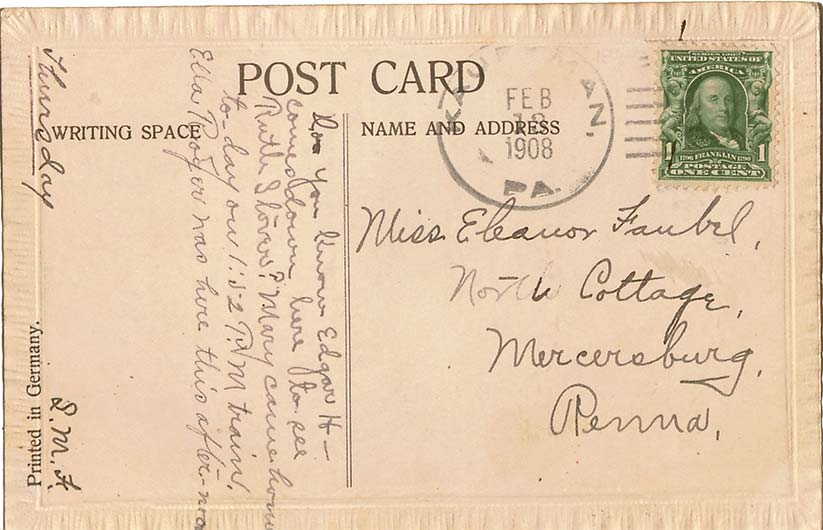 POST CARD
WRITING SPACE
NAME AND ADDRESS
Thursday
Do you know Edgar H-
comes down here to see
Ruth Stover? Mary came home
to-day on 1:52 P.M train.
Ella was here this after-noon
S.M.F.
Printed in Germany.
FEB
1908
PA.
SERIES 1902
UNITED STATES OF
AMERICA
1706 FRANKLIN 1790
1 POSTAGE 1
ONE CENT
Miss Eleanor Faubel,
North Cottage,
Mercersburg,
Penna,